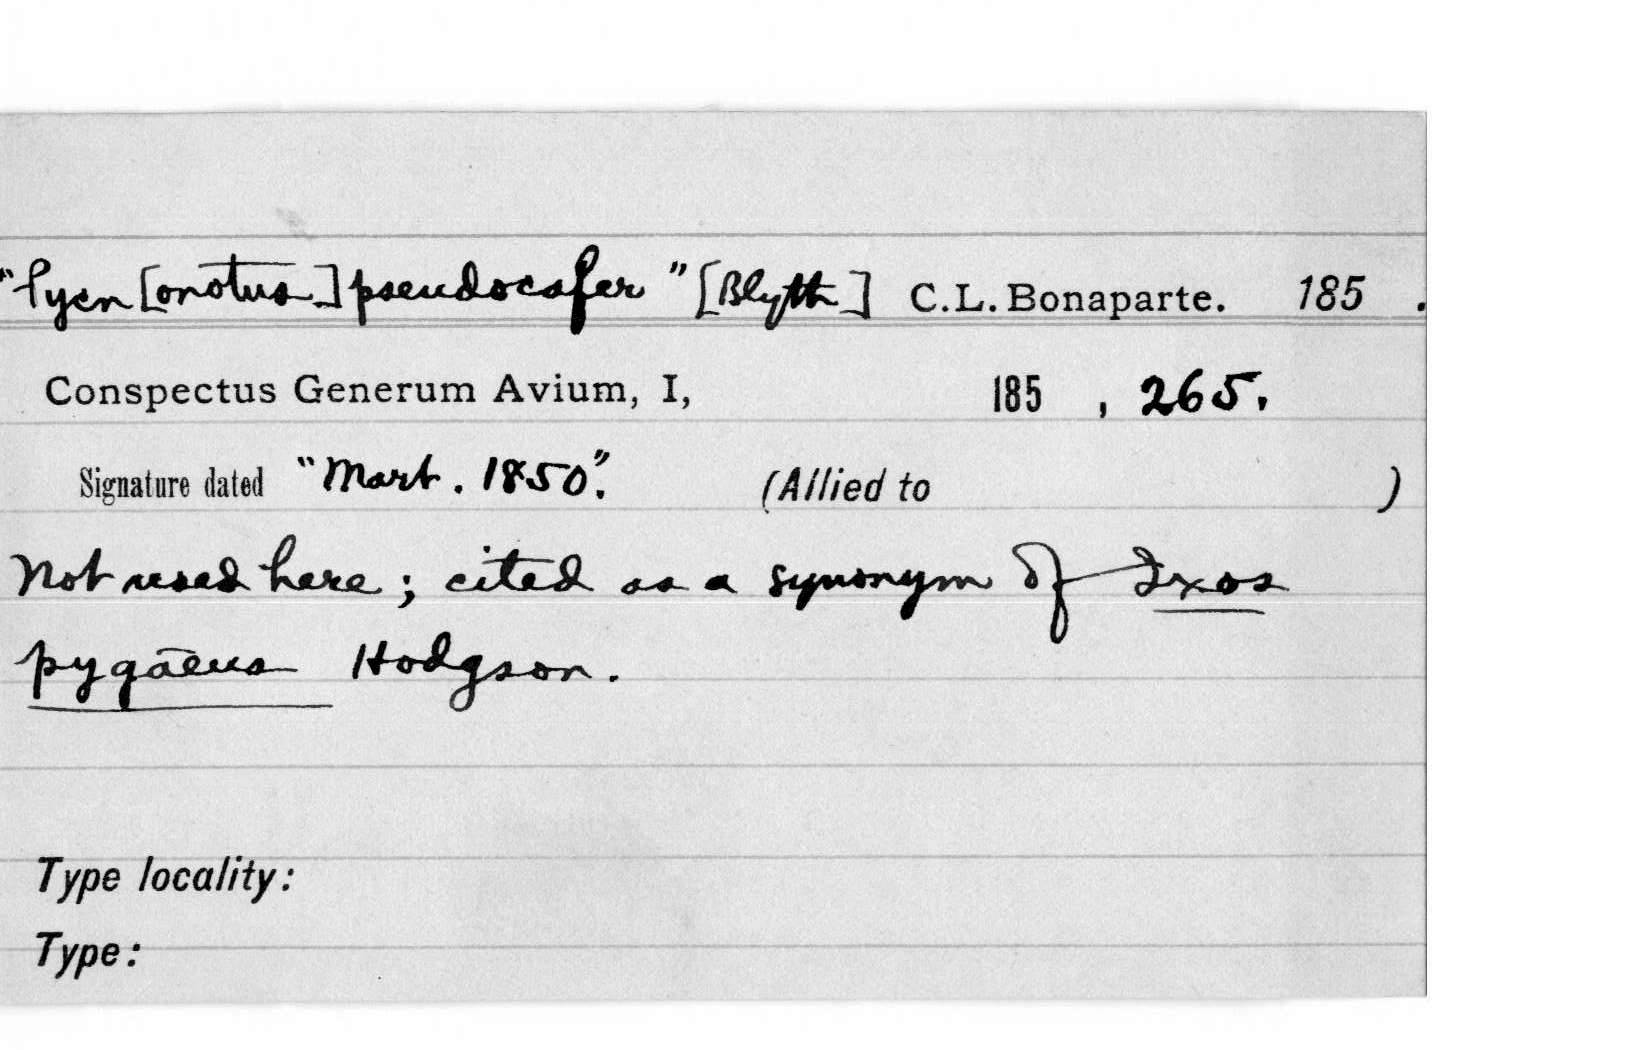 "Pycn[onotus] pseudocafer" [Blyth] C.L. Bonaparte. 185 .
Conspectus Generum Avium, I, 185 , 265.
Signature dated "Mart. 1850". (Allied to )
Not used here; cited as a synonym of Ixos
pygaeus Hodgson.
Type locality:
Type: